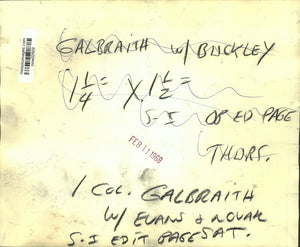 GALBRAITH W/ BUCKLEY
1 1/4 = X 1 1/2 =
S-I OP ED PAGE
THURS.
FEB 11 1969
1 COL. GALBRAITH
W/ EVANS & NOVAK
S-I EDIT PAGE SAT.